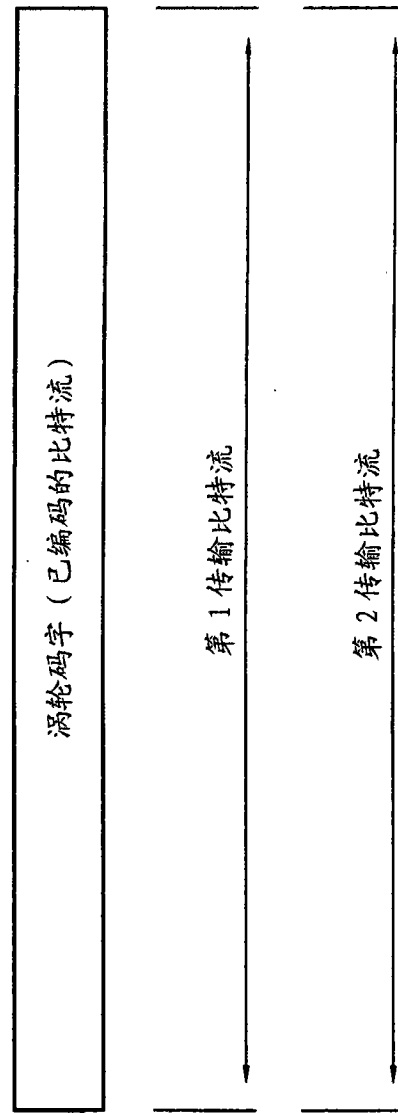 涡轮码字（已编码的比特流）
第1传输比特流
第2传输比特流